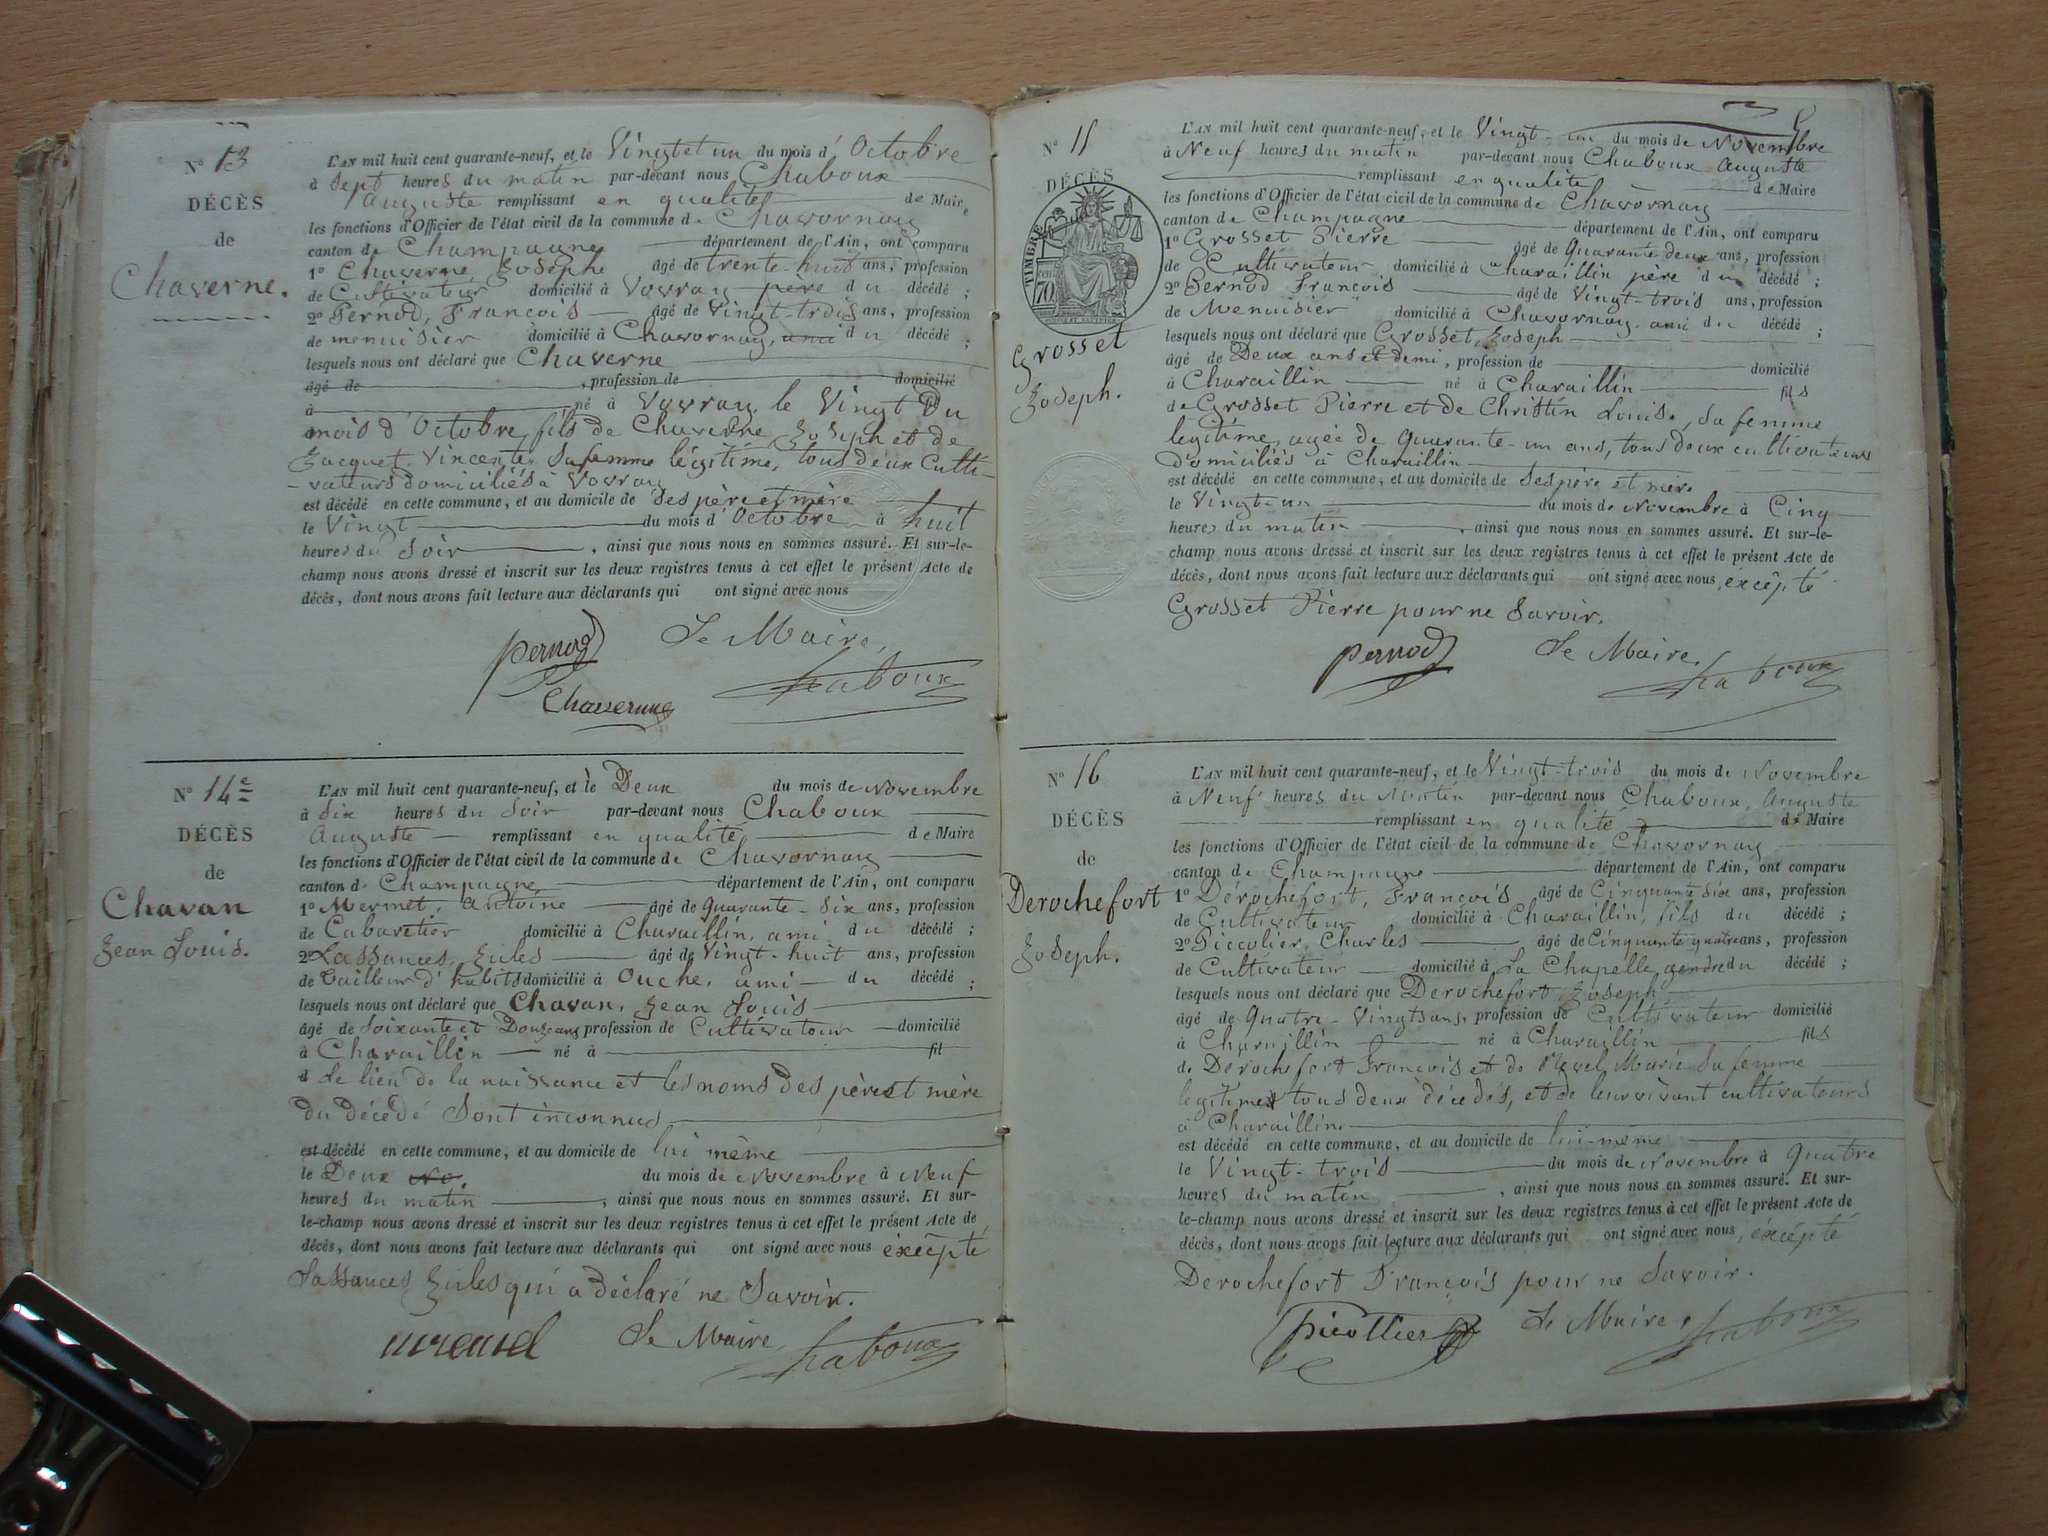 N° 13
DÉCÈS
de
Chaverne.
L'AN mil huit cent quarante-neuf, et le Vingt et un du mois d' Octobre
à Sept heures du matin par-devant nous Chaboux
Auguste remplissant en qualité de Maire
les fonctions d'Officier de l'état civil de la commune de Chavornay
canton de Champagne département de l'Ain, ont comparu
1° Chaverne, Joseph âgé de trente-huit ans, profession
de Cultivateur domicilié à Vovray père du décédé ;
2° Pernod, François âgé de Vingt-trois ans, profession
de menuisier domicilié à Chavornay, ami du décédé ;
lesquels nous ont déclaré que Chaverne
âgé de , profession de domicilié
à né à Vovray le Vingt Du
mois d'Octobre, fils de Chaverne Joseph et de
Jacquet, Vincente, Sa femme légitime, tous deux Culti-
-vateurs domiciliés à Vovray
est décédé en cette commune, et au domicile de Ses père et mère
le Vingt du mois d' Octobre à huit
heures du Soir , ainsi que nous nous en sommes assuré. Et sur-le-
champ nous avons dressé et inscrit sur les deux registres tenus à cet effet le présent Acte de
décès, dont nous avons fait lecture aux déclarants qui ont signé avec nous
Pernod Le Maire,
Chaverne Chaboux
N° 14e
DÉCÈS
de
Chavan
Jean Louis.
L'AN mil huit cent quarante-neuf, et le Deux du mois de Novembre
à Six heures du Soir par-devant nous Chaboux
Auguste remplissant en qualité de Maire
les fonctions d'Officier de l'état civil de la commune de Chavornay
canton de Champagne département de l'Ain, ont comparu
1° Mermet, Antoine âgé de Quarante-Six ans, profession
de Cabaretier domicilié à Charaillin, ami du décédé ;
2° Lassances, Jules âgé de Vingt-huit ans, profession
de Tailleur d'habits domicilié à Ouche, ami du décédé ;
lesquels nous ont déclaré que Chavan, Jean Louis
âgé de Soixante et Douze ans, profession de Cultivateur domicilié
à Charaillin né à fil
d Le lieu de la naissance et les noms des père et mère
du décédé Sont inconnus
est décédé en cette commune, et au domicile de lui même
le Deux No. du mois de Novembre à Neuf
heures du matin , ainsi que nous nous en sommes assuré. Et sur-
le-champ nous avons dressé et inscrit sur les deux registres tenus à cet effet le présent Acte de
décès, dont nous avons fait lecture aux déclarants qui ont signé avec nous éxcépté
Lassances Jules qui a déclaré ne Savoir.
Le Maire, Chaboux
N° 15
DÉCÈS
TIMBRE
70
Grosset
Joseph.
L'AN mil huit cent quarante-neuf, et le Vingt-un du mois de Novembre
à Neuf heures du matin par-devant nous Chaboux Auguste
remplissant en qualité de Maire
les fonctions d'Officier de l'état civil de la commune de Chavornay
canton de Champagne département de l'Ain, ont comparu
1° Grosset Pierre âgé de Quarante deux ans, profession
de Cultivateur domicilié à Charaillin père du décédé ;
2° Pernod François âgé de Vingt-trois ans, profession
de Menuisier domicilié à Chavornay ami du décédé ;
lesquels nous ont déclaré que Grosset, Joseph
âgé de Deux ans et Demi, profession de domicilié
à Charaillin né à Charaillin fils
de Grosset Pierre et de Christin Louise, Sa femme
legitime, agée de Quarante-un ans, tous deux cultivateurs
domiciliés à Charaillin
est décédé en cette commune, et au domicile de Ses père et mère
le Vingt un du mois de Novembre à Cinq
heures du matin , ainsi que nous nous en sommes assuré. Et sur-le-
champ nous avons dressé et inscrit sur les deux registres tenus à cet effet le présent Acte de
décès, dont nous avons fait lecture aux déclarants qui ont signé avec nous, éxcépté
Grosset Pierre pour ne Savoir.
Pernod Le Maire,
Chaboux
N° 16
DÉCÈS
de
Derochefort
Joseph.
L'AN mil huit cent quarante-neuf, et le Vingt-trois du mois de Novembre
à Neuf heures du Matin par-devant nous Chaboux, Auguste
remplissant en qualité de Maire
les fonctions d'Officier de l'état civil de la commune de Chavornay
canton de Champagne département de l'Ain, ont comparu
1° Dérochefort, François âgé de Cinquante Six ans, profession
de Cultivateur domicilié à Charaillin, fils du décédé ;
2° Piccolier, Charles âgé de Cinquante quatre ans, profession
de Cultivateur domicilié à La Chapelle, gendre du décédé ;
lesquels nous ont déclaré que Derochefort Joseph
âgé de Quatre-Vingts ans, profession de Cultivateur domicilié
à Charaillin né à Charaillin fils
de Dérochefort François et de Marie Sa femme
légitime tous deux décédés, et de leur vivant cultivateurs
à Charaillin
est décédé en cette commune, et au domicile de lui-meme
le Vingt-trois du mois de Novembre à Quatre
heures du matin , ainsi que nous nous en sommes assuré. Et sur-
le-champ nous avons dressé et inscrit sur les deux registres tenus à cet effet le présent Acte de
décès, dont nous avons fait lecture aux déclarants qui ont signé avec nous, éxcépté
Derochefort François pour ne Savoir.
Picollier Le Maire, Chaboux